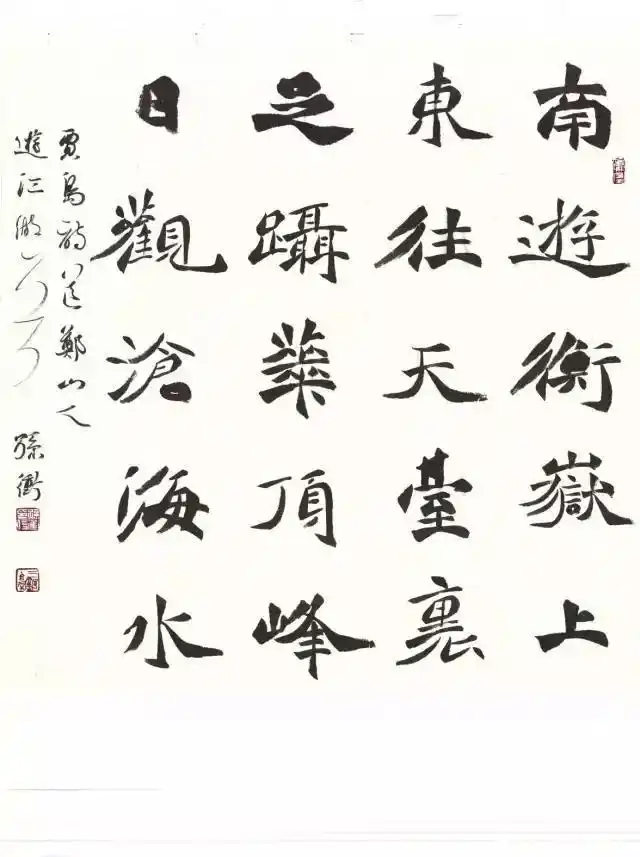 南遊衡嶽上
東往天臺裏
足躡華頂峰
目觀滄海水
賈島詩送鄭山人
遊江湖 孫